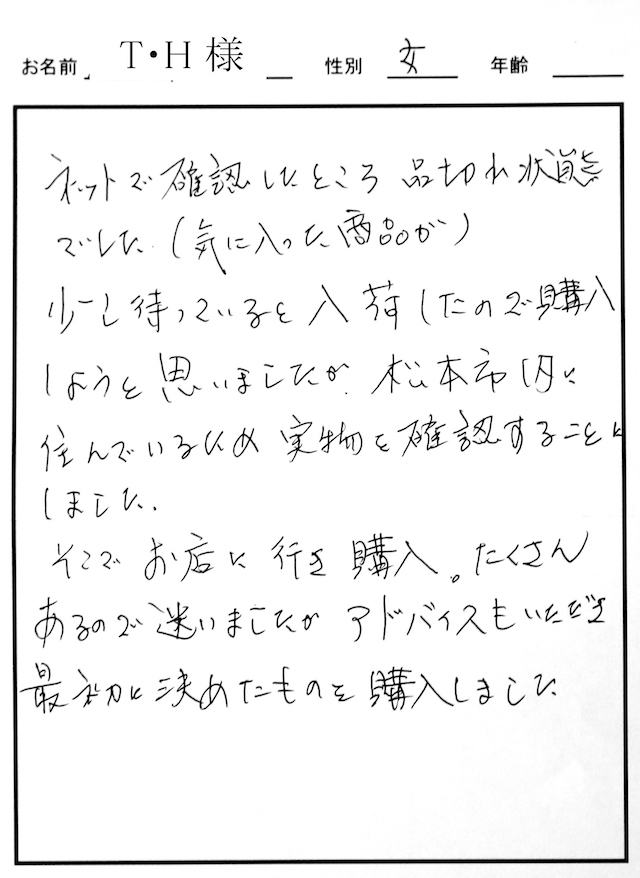 お名前 T・H 様 性別 女 年齢
ネットで確認したところ 品切れ状態
でした (気に入った商品が)
少し待っていると入荷したので購入
しようと思いましたが 松本市内に
住んでいるため 実物を確認することに
しました.
そこで お店に行き 購入。たくさん
あるので迷いましたが アドバイスもいただき
最初に決めたものを購入しました